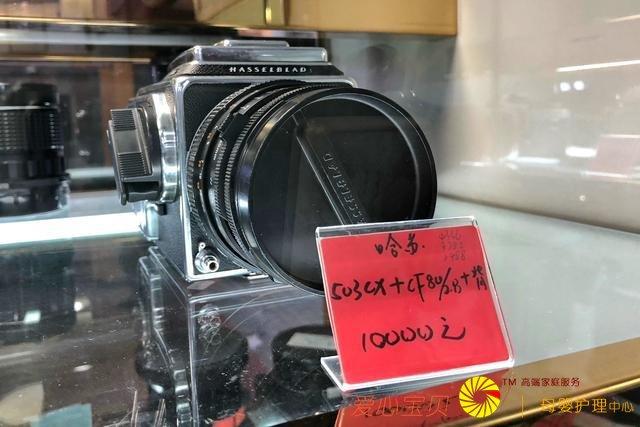 HASSELBLAD
HASSELBLAD
哈苏
503CX+CF80/2.8+
10000元
爱心宝贝
TM 高端家庭服务
母婴护理中心